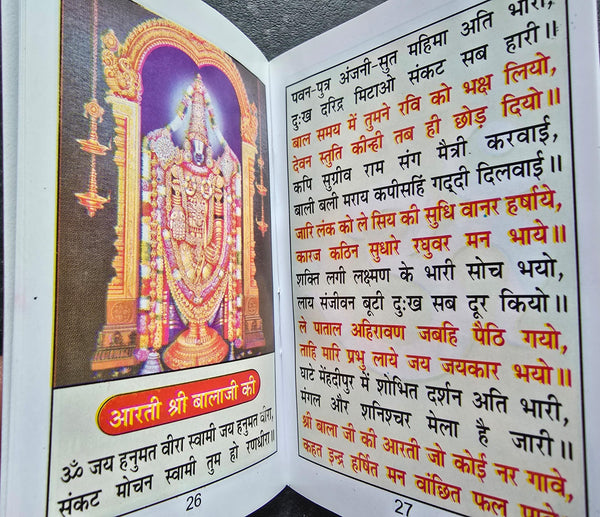 आरती श्री बालाजी की
ॐ जय हनुमत वीरा स्वामी जय हनुमत वीरा,
संकट मोचन स्वामी तुम हो रणधीरा॥
26
पवन-पुत्र अंजनी-सुत महिमा अति भारी,
दुःख दरिद्र मिटाओ संकट सब हारी॥
बाल समय में तुमने रवि को भक्ष लियो,
देवन स्तुति कीन्ही तब ही छोड़ दियो॥
कपि सुग्रीव राम संग मैत्री करवाई,
बाली बली मराय कपीसहिं गद्दी दिलवाई॥
जारि लंक को ले सिय की सुधि वानर हर्षाये,
कारज कठिन सुधारे रघुवर मन भाये॥
शक्ति लगी लक्ष्मण के भारी सोच भयो,
लाय संजीवन बूटी दुःख सब दूर कियो॥
ले पाताल अहिरावण जबहि पैठि गयो,
ताहि मारि प्रभु लाये जय जयकार भयो॥
घाटे मेंहदीपुर में शोभित दर्शन अति भारी,
मंगल और शनिश्चर मेला है जारी॥
श्री बाला जी की आरती जो कोई नर गावे,
कहत इन्द्र हर्षित मन वांछित फल पावे
27